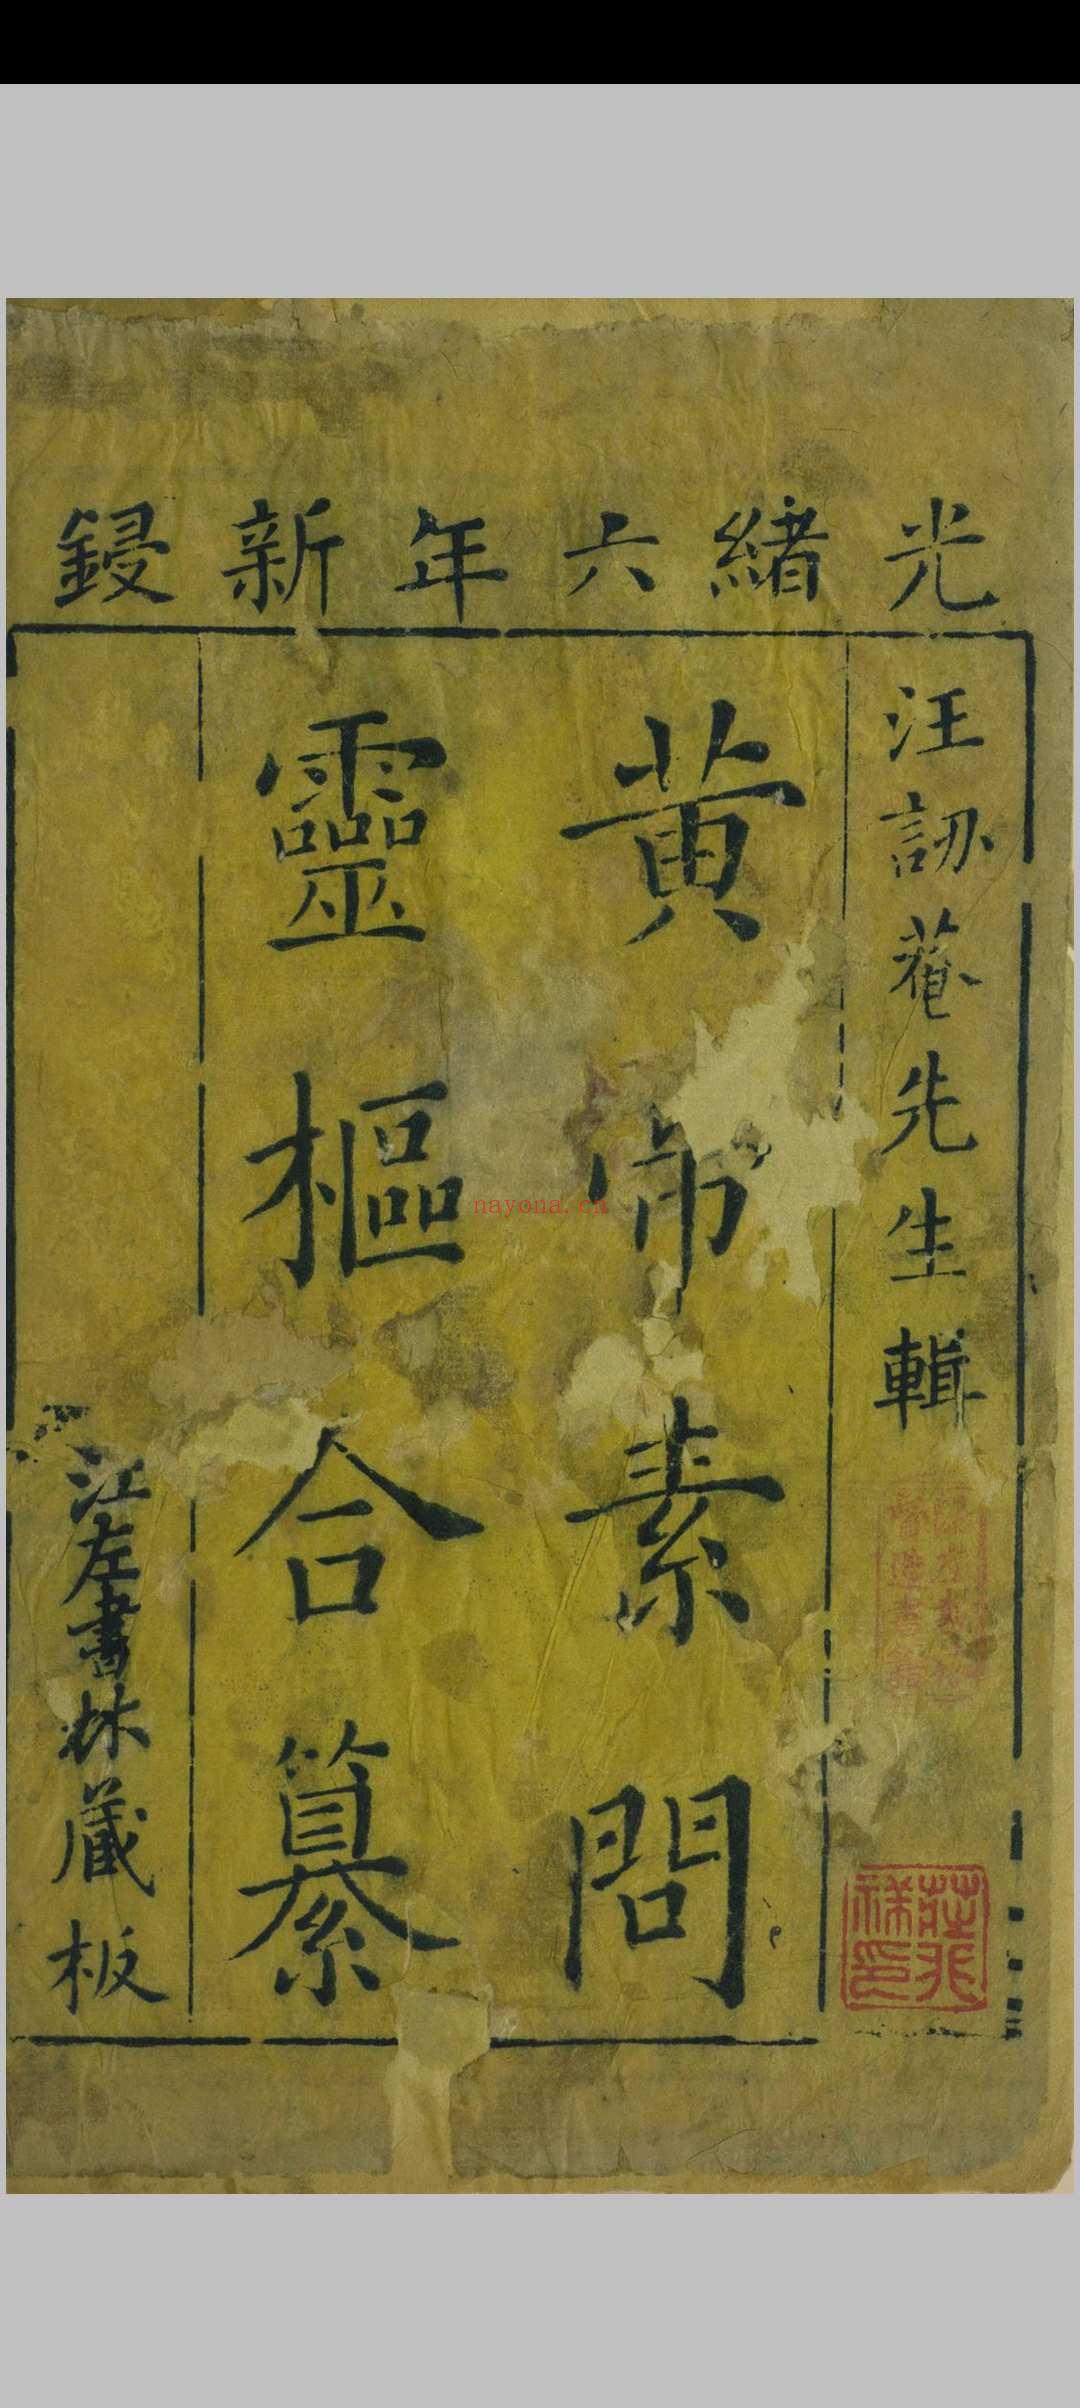 光緒六年新鋟
汪訒菴先生輯
黄帝素問
靈樞合纂
江左書林藏板
nayona.cn